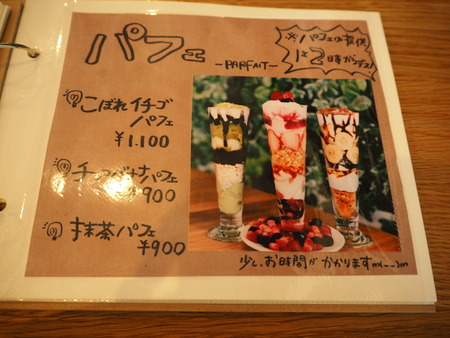 パフェ
-PARFAIT-
※パフェの提供
は2時からデス!
こぼれイチゴ
パフェ
¥1.100
チョコバナナパフェ
¥900
抹茶パフェ
¥900
少し、お時間がかかりますm(__)m